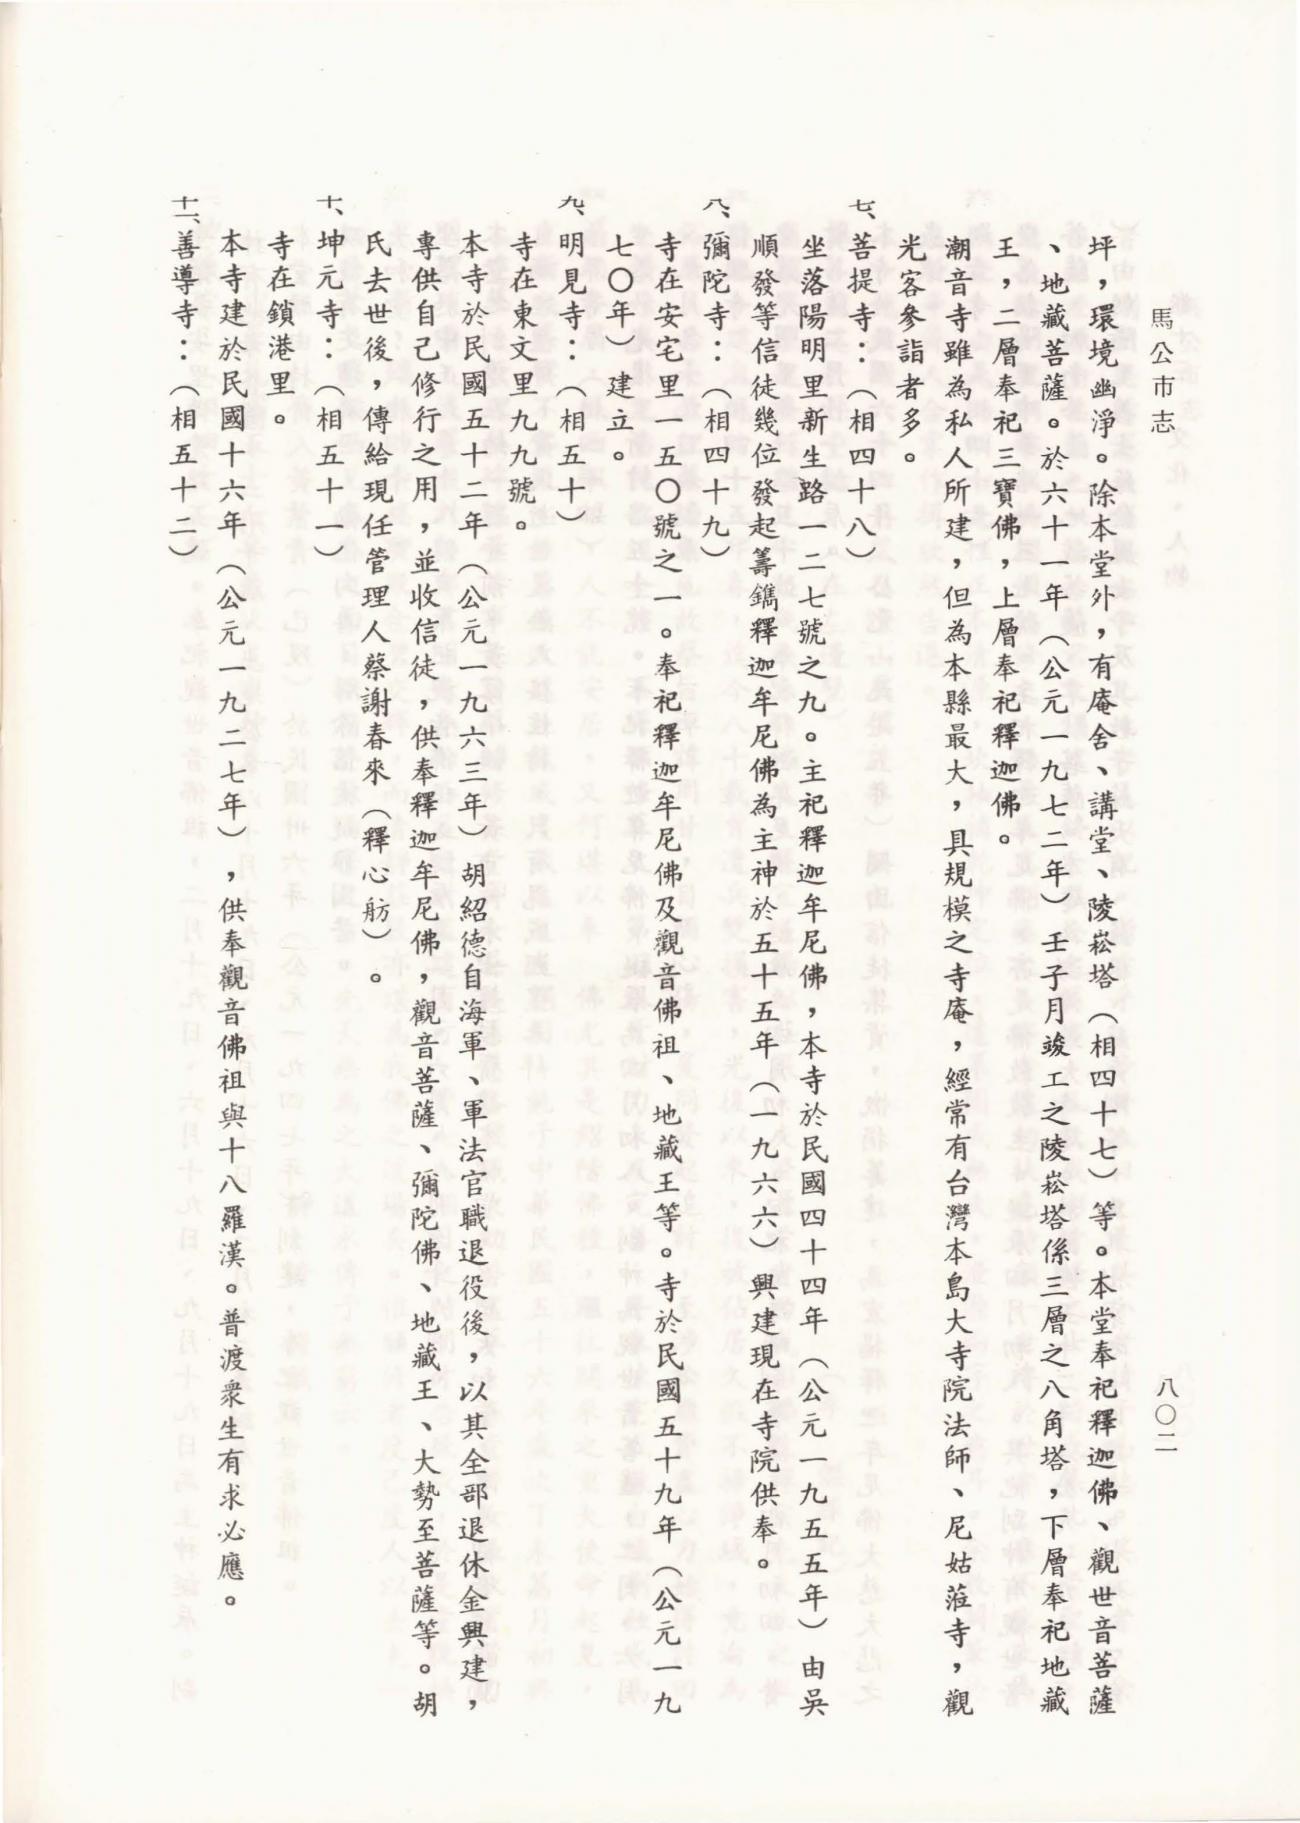 馬公市志
八〇二
坪，環境幽淨。除本堂外，有庵舍、講堂、陵崧塔（相四十七）等。本堂奉祀釋迦佛、觀世音菩薩
、地藏菩薩。於六十一年（公元一九七二年）壬子月竣工之陵崧塔係三層之八角塔，下層奉祀地藏
王，二層奉祀三寶佛，上層奉祀釋迦佛。
潮音寺雖為私人所建，但為本縣最大，具規模之寺庵，經常有台灣本島大寺院法師、尼姑蒞寺，觀
光客參詣者多。
七、菩提寺：（相四十八）
坐落陽明里新生路一二七號之九。主祀釋迦年尼佛，本寺於民國四十四年（公元一九五五年）由吳
順發等信徒幾位發起籌鐫釋迦牟尼佛為主神於五十五年（一九六六）興建現在寺院供奉。
八、彌陀寺：（相四十九）
寺在安宅里一五〇號之一。奉祀釋迦牟尼佛及觀音佛祖、地藏王等。寺於民國五十九年（公元一九
七〇年）建立。
九、明見寺：（相五十）
寺在東文里九九號。
本寺於民國五十二年（公元一九六三年）胡紹德自海軍、軍法官職退役後，以其全部退休金興建，
專供自己修行之用，並收信徒，供奉釋迦牟尼佛，觀音菩薩、彌陀佛、地藏王、大勢至菩薩等。胡
氏去世後，傳給現任管理人蔡謝春來（釋心舫）。
十、坤元寺：（相五十一）
寺在鎖港里。
本寺建於民國十六年（公元一九二七年），供奉觀音佛祖與十八羅漢。普渡衆生有求必應。
十一、善導寺：（相五十二）